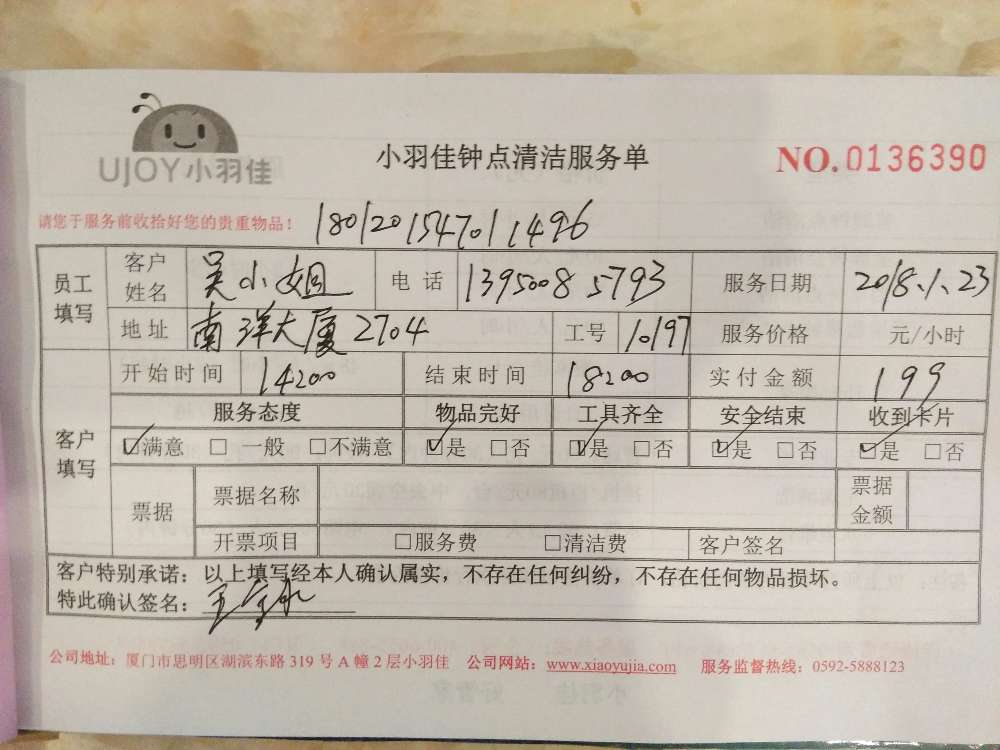 UJOY小羽佳
小羽佳钟点清洁服务单
NO.0136390
请您于服务前收拾好您的贵重物品！
1801201547011496
员工填写 客户姓名 吴小姐 电话 13950085793 服务日期 2018.1.23
地址 南洋大厦2704 工号 10197 服务价格 元/小时
客户填写 开始时间 14:00 结束时间 18:00 实付金额 199
服务态度 物品完好 工具齐全 安全结束 收到卡片
☑满意 □一般 □不满意 ☑是 □否 ☑是 □否 ☑是 □否 ☑是 □否
票据 票据名称 票据金额
开票项目 □服务费 □清洁费 客户签名
客户特别承诺：以上填写经本人确认属实，不存在任何纠纷，不存在任何物品损坏。
特此确认签名：
公司地址：厦门市思明区湖滨东路319号A幢2层小羽佳 公司网站：www.xiaoyujia.com 服务监督热线：0592-5888123